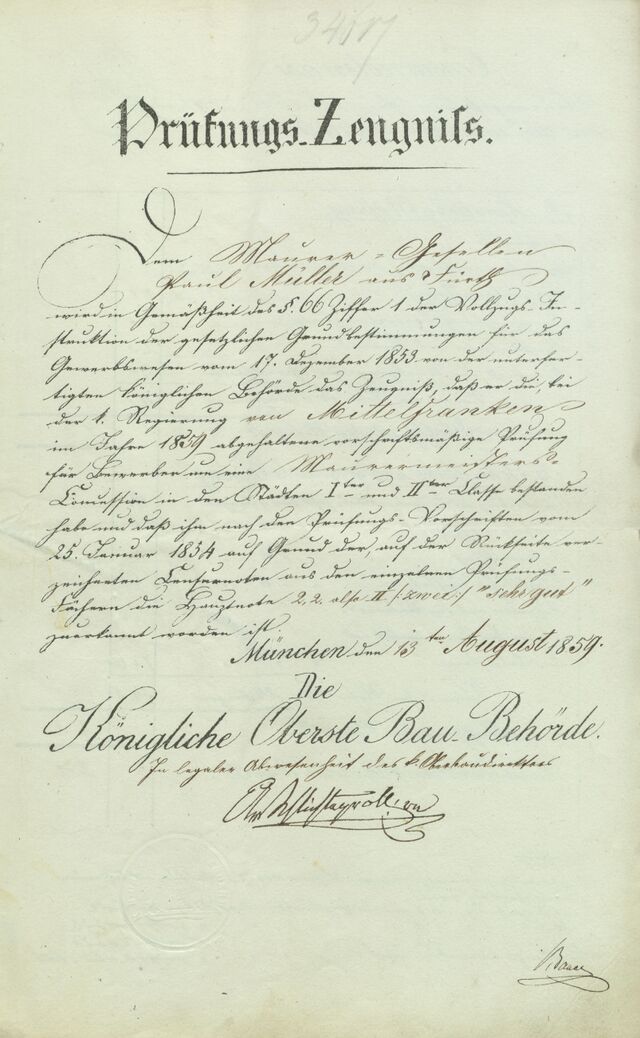 Prüfungs-Zeugniſs.
Dem Maurer-Gesellen
Paul Müller aus Fürth
wird in Gemäßheit des §. 66 Ziffer 1 der Vollzugs-In-
struktion der gesetzlichen Grundbestimmungen für das
Gewerbswesen vom 17. Dezember 1853 von der unterfer-
tigten königlichen Behörde das Zeugniß, daß er die, bei
der k. Regierung von Mittelfranken
im Jahre 1859 abgehaltene vorschriftsmäßige Prüfung
für Bewerber um eine Maurermeisters-
Concession in den Städten Iter und IIter Classe bestanden
habe und daß ihm nach den Prüfungs-Vorschriften vom
25. Januar 1854 auf Grund der, auf der Rückseite ver-
zeichneten Censurnoten aus den einzelnen Prüfungs-
Fächern die Hauptnote 2,2 also II /:zwei:/ "sehr gut"
zuerkannt worden ist.
München den 13ten August 1859.
Die
Königliche Oberste Bau-Behörde.
In legaler Abwesenheit des k. Oberbaudirektors